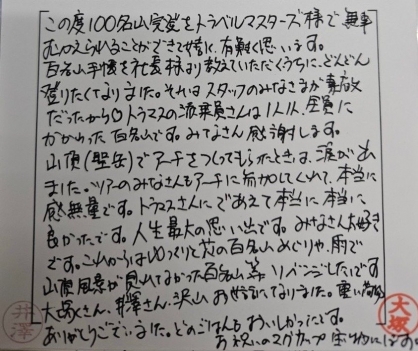 この度100名山完登をトラベルマスターズ様で無事
むかえられることができて嬉しく、有難く思います。
百名山手帳を社長様より教えていただくうちに、どんどん
登りたくなりました。それはスタッフのみなさまが素敵
だったから トラマスの添乗員さんは1人1人、全員に
かかわった百名山です。みなさん感謝します。
山頂(聖岳)でアーチをつくってもらったときは、涙が出
ました。ツアーのみなさんもアーチに参加してくれて、本当に
感無量です。トラマスさんにであえて本当に本当に
良かったです。人生最大の思い出です。みなさん大好き
です。これからはゆっくりと花の百名山めぐりや、雨で
山頂風景が見えてなかった百名山等 リベンジしたいです
大塚さん、井澤さん、沢山お世話になりました。重い荷物
ありがとうございました。どのごはんもおいしかったです。
お祝いのマグカップ宝物にします
井澤
大塚